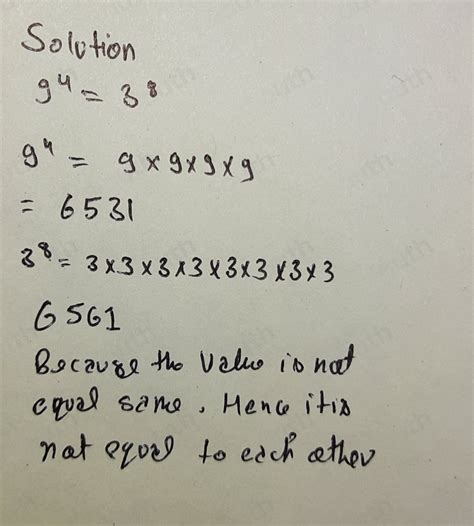 Solution
9⁴ = 3⁸
9⁴ = 9 x 9 x 9 x 9
= 6531
3⁸ = 3 x 3 x 3 x 3 x 3 x 3 x 3 x 3
6561
Because the value is not
equal same. Hence it is
not equal to each other